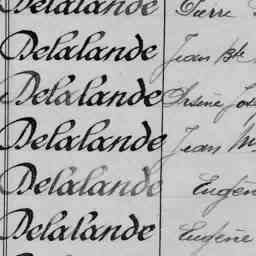 Delalande Pierre
Delalande Jean Bte
Delalande Arsène Jos
Delalande Jean M
Delalande Eugèn
Delalande Eugène